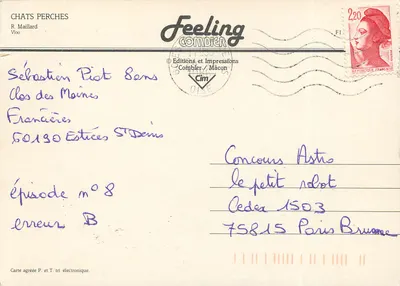 CHATS PERCHES
R. Maillard
Feeling
COMBIER
© Editions et Impressions
Combier / Mâcon
Cim
2,20
Sébastien Piot 8ans
Clos des Moines
Francières
60190 Estrées St Denis
épisode n° 8
erreur B
Concours Astro
le petit robot
Cedex 1503
75815 Paris Brune
Carte agréée P. et T. tri électronique